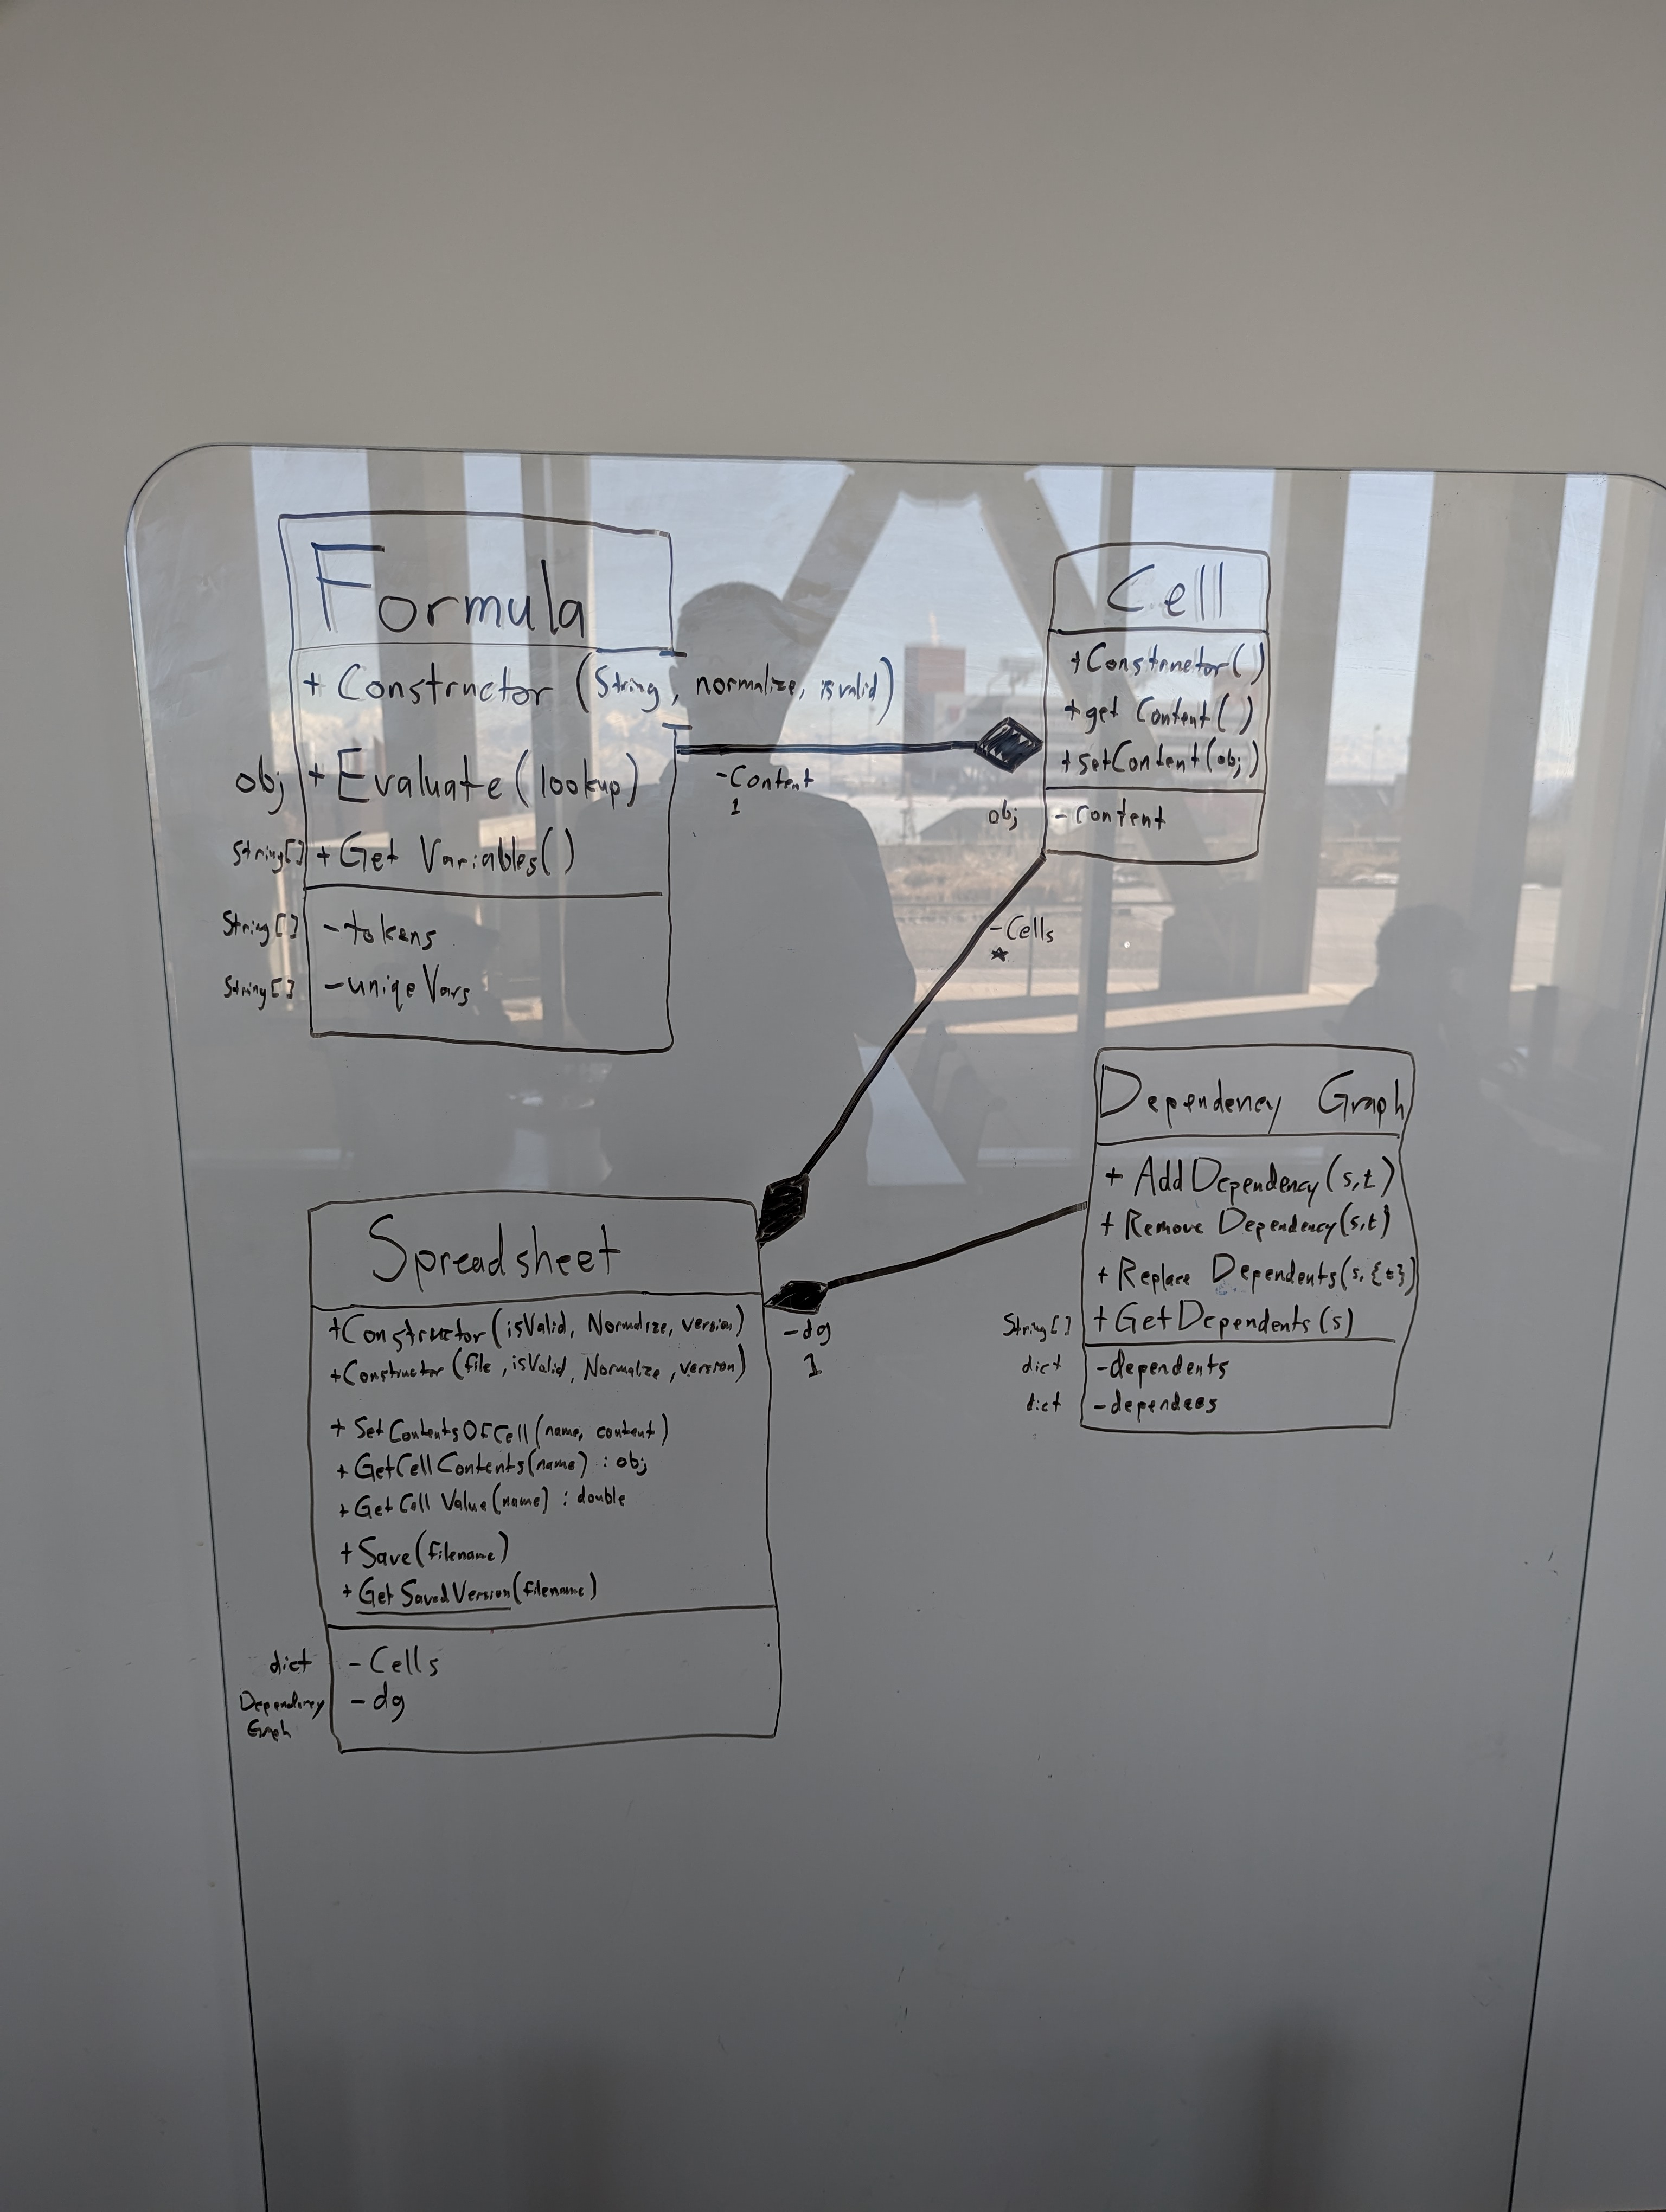 Formula
+ Constructor (String, normalize, isvalid)
obj + Evaluate (lookup)
String[] + Get Variables()
String[] - tokens
String[] - uniqeVars
- Content
1
Cell
+ Constructor()
+ get Content()
+ setContent(obj)
obj - content
- Cells
*
Dependency Graph
+ AddDependency(s,t)
+ Remove Dependency(s,t)
+ Replace Dependents(s,{t})
String[] + GetDependents(s)
dict - dependents
dict - dependees
Spreadsheet
+ Constructor(isValid, Normalize, version)
+ Constructor(file, isValid, Normalize, version)
+ SetContentsOfCell(name, content)
+ GetCellContents(name) : obj
+ GetCell Value(name) : double
+ Save(filename)
+ Get Saved Version(filename)
dict - Cells
Dependency - dg
Graph
- dg
1